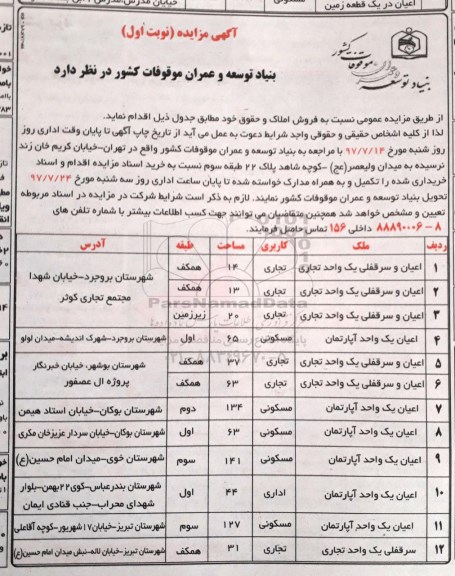 اعیان در یک قطعه زمین
مسکونی
آگهی مزایده (نوبت اول)
بنیاد توسعه و عمران موقوفات کشور در نظر دارد
بنیاد توسعه و عمران موقوفات کشور
از طریق مزایده عمومی نسبت به فروش املاک و حقوق خود مطابق جدول ذیل اقدام نماید.
لذا از کلیه اشخاص حقیقی و حقوقی واجد شرایط دعوت به عمل می آید از تاریخ چاپ آگهی تا پایان وقت اداری روز
روز شنبه مورخ ۹۷/۷/۱۴ با مراجعه به بنیاد توسعه و عمران موقوفات کشور واقع در تهران-خیابان کریم خان زند
نرسیده به میدان ولیعصر(عج) -کوچه شاهد پلاک ۲۲ طبقه سوم نسبت به خرید اسناد مزایده اقدام و اسناد
خریداری شده را تکمیل و به همراه مدارک خواسته شده تا پایان ساعت اداری روز سه شنبه مورخ ۹۷/۷/۲۴
تحویل بنیاد توسعه و عمران موقوفات کشور نمایند. لازم به ذکر است شرایط شرکت در مزایده در اسناد مربوطه
تعیین و مشخص خواهد شد همچنین متقاضیان می توانند جهت کسب اطلاعات بیشتر با شماره تلفن های
۸ -۸۸۸۹۰۰۰۶ داخلی ۱۵۶ تماس حاصل فرمایند.
ردیف ملک کاربری مساحت طبقه آدرس
۱ اعیان و سرقفلی یک واحد تجاری تجاری ۱۴ همکف شهرستان بروجرد-خیابان شهدا
۲ اعیان و سرقفلی یک واحد تجاری تجاری ۱۳ همکف مجتمع تجاری کوثر
۳ اعیان و سرقفلی یک واحد تجاری تجاری ۲۰ زیرزمین
ParsNamadData
۴ اعیان یک واحد آپارتمان مسکونی ۶۵ اول شهرستان بروجرد-شهرک اندیشه-میدان لولو
۵ اعیان و سرقفلی یک واحد تجاری تجاری ۳۷ همکف شهرستان بوشهر، خیابان خبرنگار
۶ اعیان و سرقفلی یک واحد تجاری تجاری ۶۳ همکف پروژه ال عصفور
۷ اعیان یک واحد آپارتمان مسکونی ۱۳۴ دوم شهرستان بوکان-خیابان استاد هیمن
۸ اعیان یک واحد آپارتمان مسکونی ۶۳ اول شهرستان بوکان-خیابان سردار عزیزخان مکری
۹ اعیان یک واحد آپارتمان مسکونی ۱۴۱ سوم شهرستان خوی-میدان امام حسین(ع)
۱۰ اعیان یک واحد آپارتمان اداری ۴۴ اول شهرستان بندرعباس-کوی۲۲بهمن-بلوار
شهدای محراب-جنب قنادی ایمان
۱۱ اعیان یک واحد آپارتمان مسکونی ۱۲۷ سوم شهرستان تبریز-خیابان۱۷شهریور-کوچه آقاعلی
۱۲ سرقفلی یک واحد تجاری تجاری ۳۱ همکف شهرستان تبریز-خیابان لاله-نبش میدان امام حسین(ع)